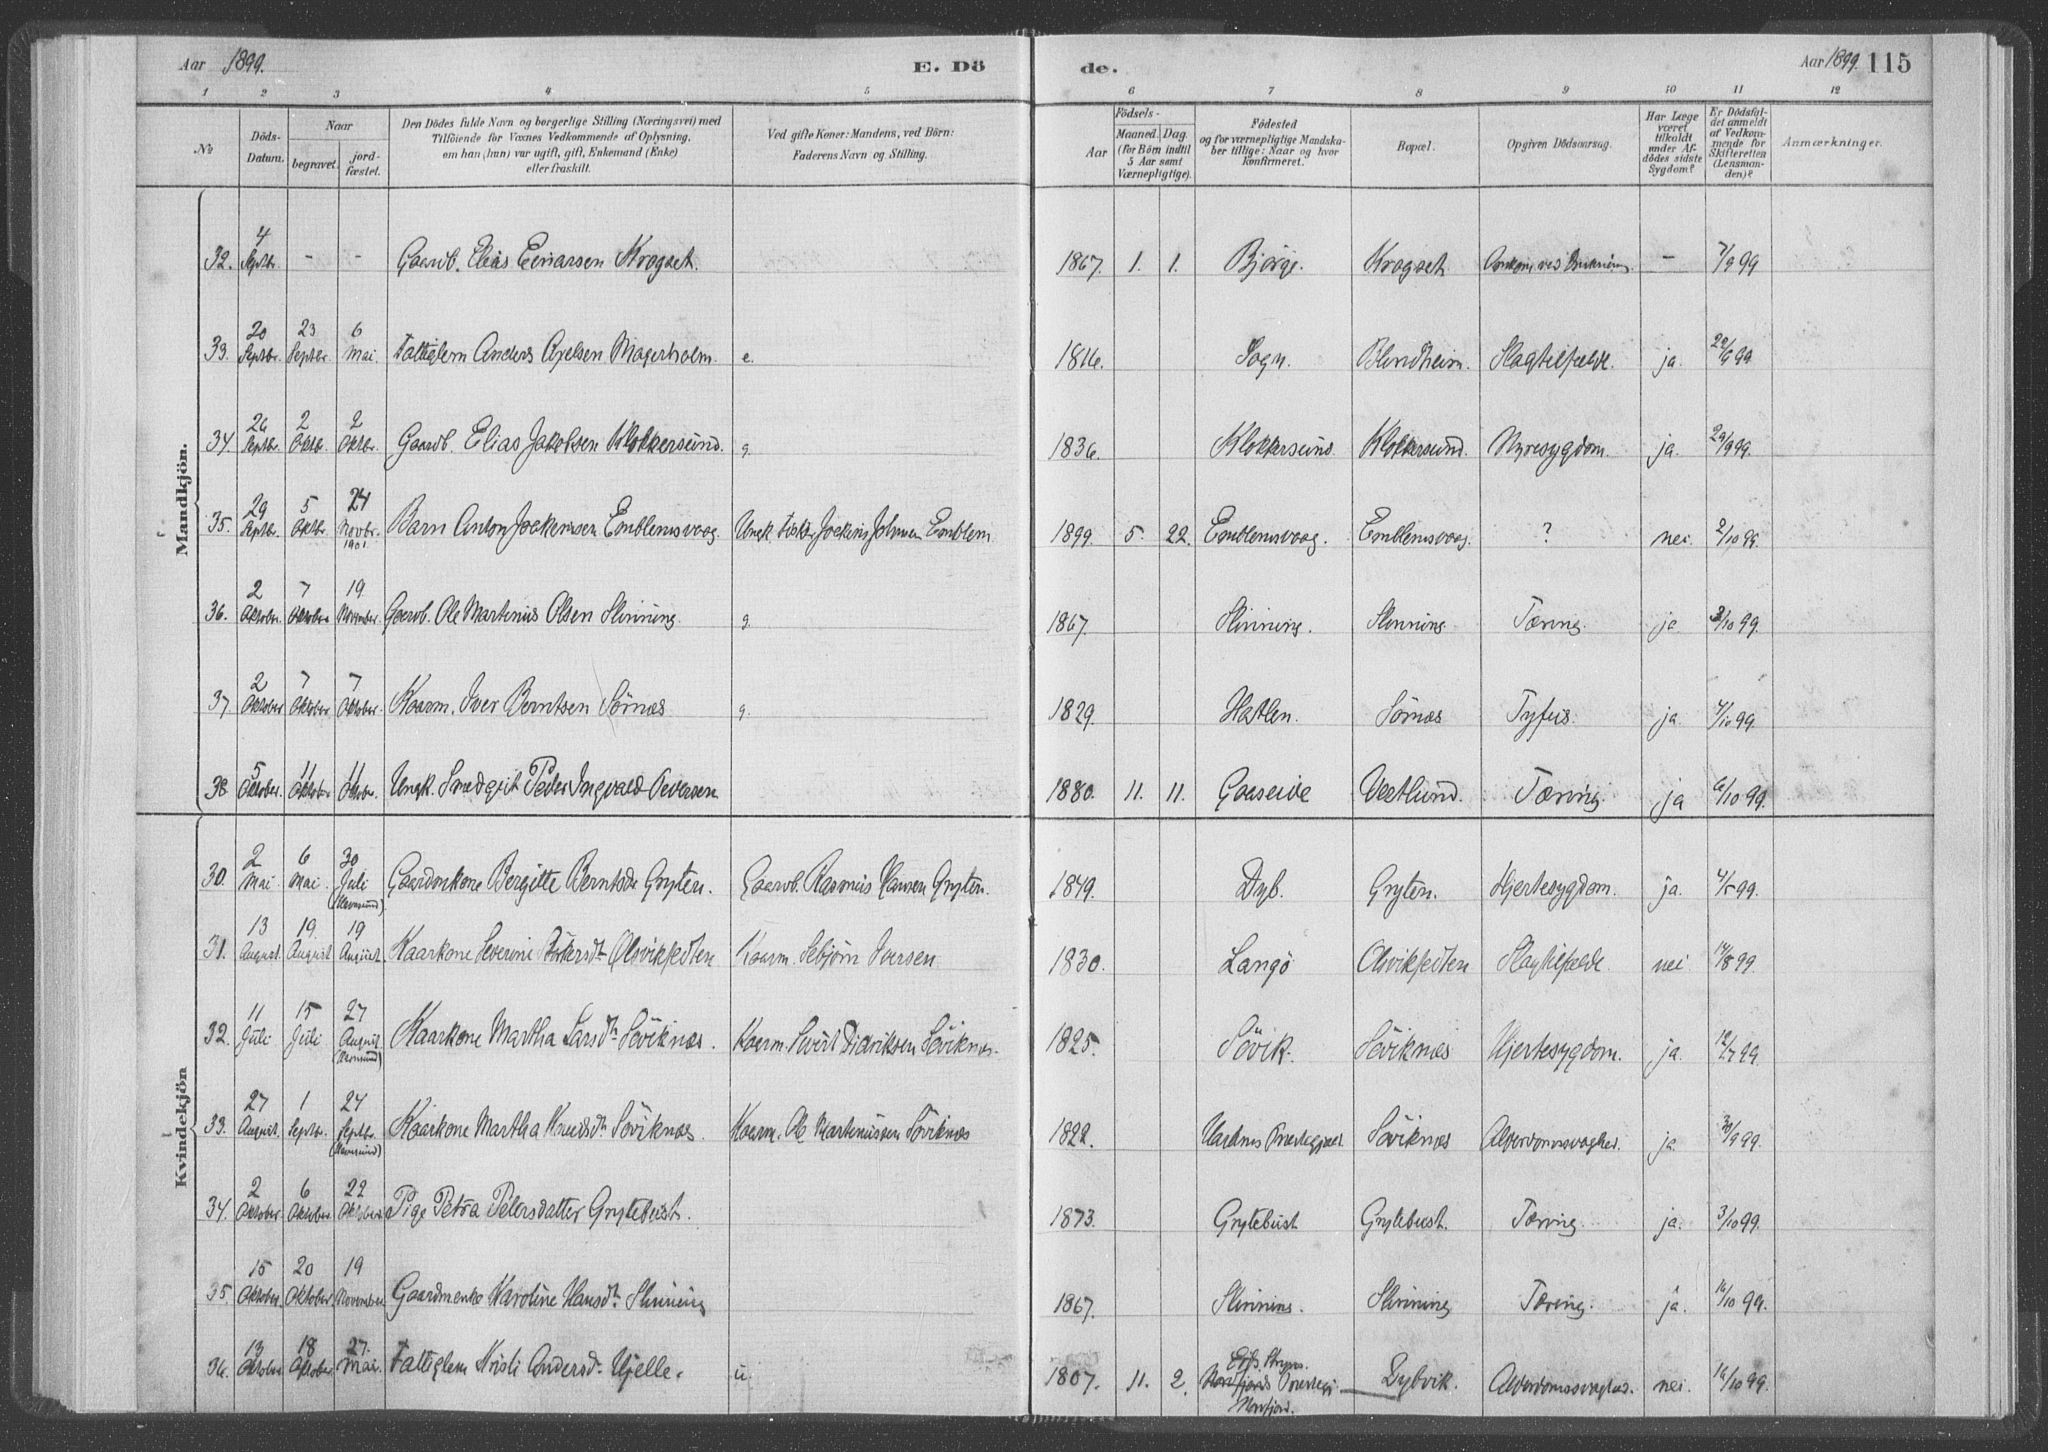 Aar 1899. E. Dö de. Aar 1899. 115
1 2 3 4 5 6 7 8 9 10 11 12
No Döds-Datum. Naar begravet. jord-fæstet. Den Dödes fulde Navn og borgerlige Stilling (Næringsvei) med Tilföiende for Voxnes Vedkommende af Oplysning, om han (hun) var ugift, gift, Enkemand (Enke) eller fraskilt. Ved gifte Koner: Mandens, ved Börn: Faderens Navn og Stilling. Födsels- Aar Maaned. Dag. (for Börn indtil 5 Aar samt Værnepligtige). Födested og for værnepligtige Mandskaber tillige: Naar og hvor Konfirmeret. Bopæl. Opgiven Dödsaarsag. Har Læge været tilkaldt under Afdödes sidste Sygdom? Er Dödsfaldet anmeldt af Vedkommende for Skifteretten (Lensmanden)? Anmærkninger.
Mandkjön.
32. 4 Septbr. - - Gaardb. Elias Einarsen Krogset. 1867. 1. 1. Bjørge. Krogset ved - 7/9 99
33. 20 Septbr. 23 Septbr. 6 Mai Fattiglem Anders Axelsen Magerholm. e. 1816. Sogn. Blindheim. Slagtilfælde. ja. 22/9 99
34. 26 Septbr. 2 Oktb. 2 Oktbr. Gaardb. Elias Jakobsen Klokkersund. g. 1836. Klokkersund Klokkersund. Nyresygdom. ja. 29/9 99.
35. 29 Septbr. 5 Oktbr. 24 Novbr. 1901 Barn Anton Jockumsen Emblemsvaag. Ungk. Fisker Jockim Johnsen Emblem 1899. 5. 22. Emblemsvaag. Emblemsvaag. ? nei. 2/10 99.
36. 2 Oktober. 7 Oktober 19. November. Gaardb. Ole Martinus Olsen Slinning. g. 1867. Slinning. Slinning Tæring. ja 3/10 99.
37 2 Oktober 7 Oktober 7 Oktober. Kaarm. Iver Berntsen Sørnes g. 1829. Hatlen. Sørnes Tyfus. ja. 4/10 99.
38 5 Oktober. 11 Oktober 11 Oktober. Ungk. Smedgut Peder Ingvald Pedersen 1880. 11. 11. Gaaseide Vestlund. Tæring. ja 6/10 99.
Kvindekjön
30. 2 Mai. 6 Mai. 30 Juli (Havnsund). Gaardmkone Bergitte Berntsdr Gryten. Gaardb. Rasmus Hansen Gryten. 1849. Dyb. Gryten. Hjertesygdom. ja. 4/5 99.
31. 13 August. 19. August 19 August Kaarkone Severine Ølsvikfedten Kaarm. Sebjørn Iversen 1830. Langö Olsvikfedten Slagtilfælde nei 14/8 99.
32. 11 Juli 15 Juli 27 August Kaarkone Martha Larsdr. Söviknes. Kaarm. Sivert Didriksen Söviknes. 1825. Sövik. Söviknes Hjertesygdom. ja. 12/7 99.
33. 27 August. 1 Septbr. 24 Septbr. Kaarkone Martha Knudsdr. Söviknes. Kaarm. Ole Martinussen Söviknes 1822. Præstegjæld Söviknes Alderdomssvaghed. ja. 30/9 99.
34. 2 Oktober. 6 Oktober 22 Oktober Pige Petra Petersdatter Grytebust. 1873. Grytebust Grytebust. Tæring. ja. 3/10 99.
35. 15 Oktober. 20 Oktober 19 November Gaardmenke Karoline Hansdr. Slinning 1867. Slinning. Slinning Tæring. ja. 16/10 99.
36. 13 Oktober 18 Oktober 27. Mai. Fattiglem Kristi Andersdr. Hjelle. u. 1807. 11. 2. Eids Nordfjord. Dybvik. Alderdomssvaghed. nei. 16/10 99.